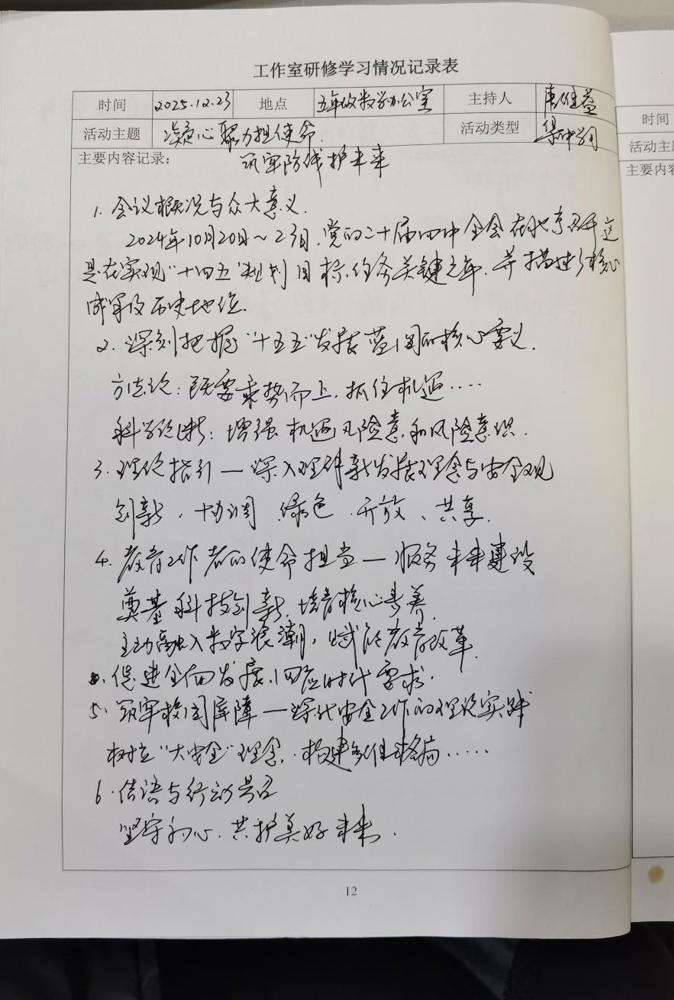 工作室研修学习情况记录表
时间 2025.12.23 地点 五年级数学办公室 主持人
活动主题 凝心聚力担使命 活动类型 集中学习
筑牢防线护未来
主要内容记录:
1. 会议概况与众大意义.
2024年10月20日~23日,党的二十届四中全会在北京召开,这
是在实现"十四五"规划目标,任务关键之年,并描述核心
成果及历史地位.
2. 深刻把握"十五五"发展蓝图的核心要义.
方法论:既要乘势而上,抓住机遇....
科学论断:增强机遇风险意和风险意识.
3. 理论指引—深入理解新发展理念与安全观
创新、协调、绿色、开放、共享.
4. 教育工作者的使命担当—服务未来建设
奠基科技创新,培育核心素养
主动融入数字浪潮,赋能教育改革.
促进全面发展,回应时代要求.
5. 筑牢校园屏障—深化安全工作的理论实践
树立"大安全"理念,构建多维格局.....
6. 结语与行动号召
坚守初心,共护美好未来.
12
时间
活动主
主要内容